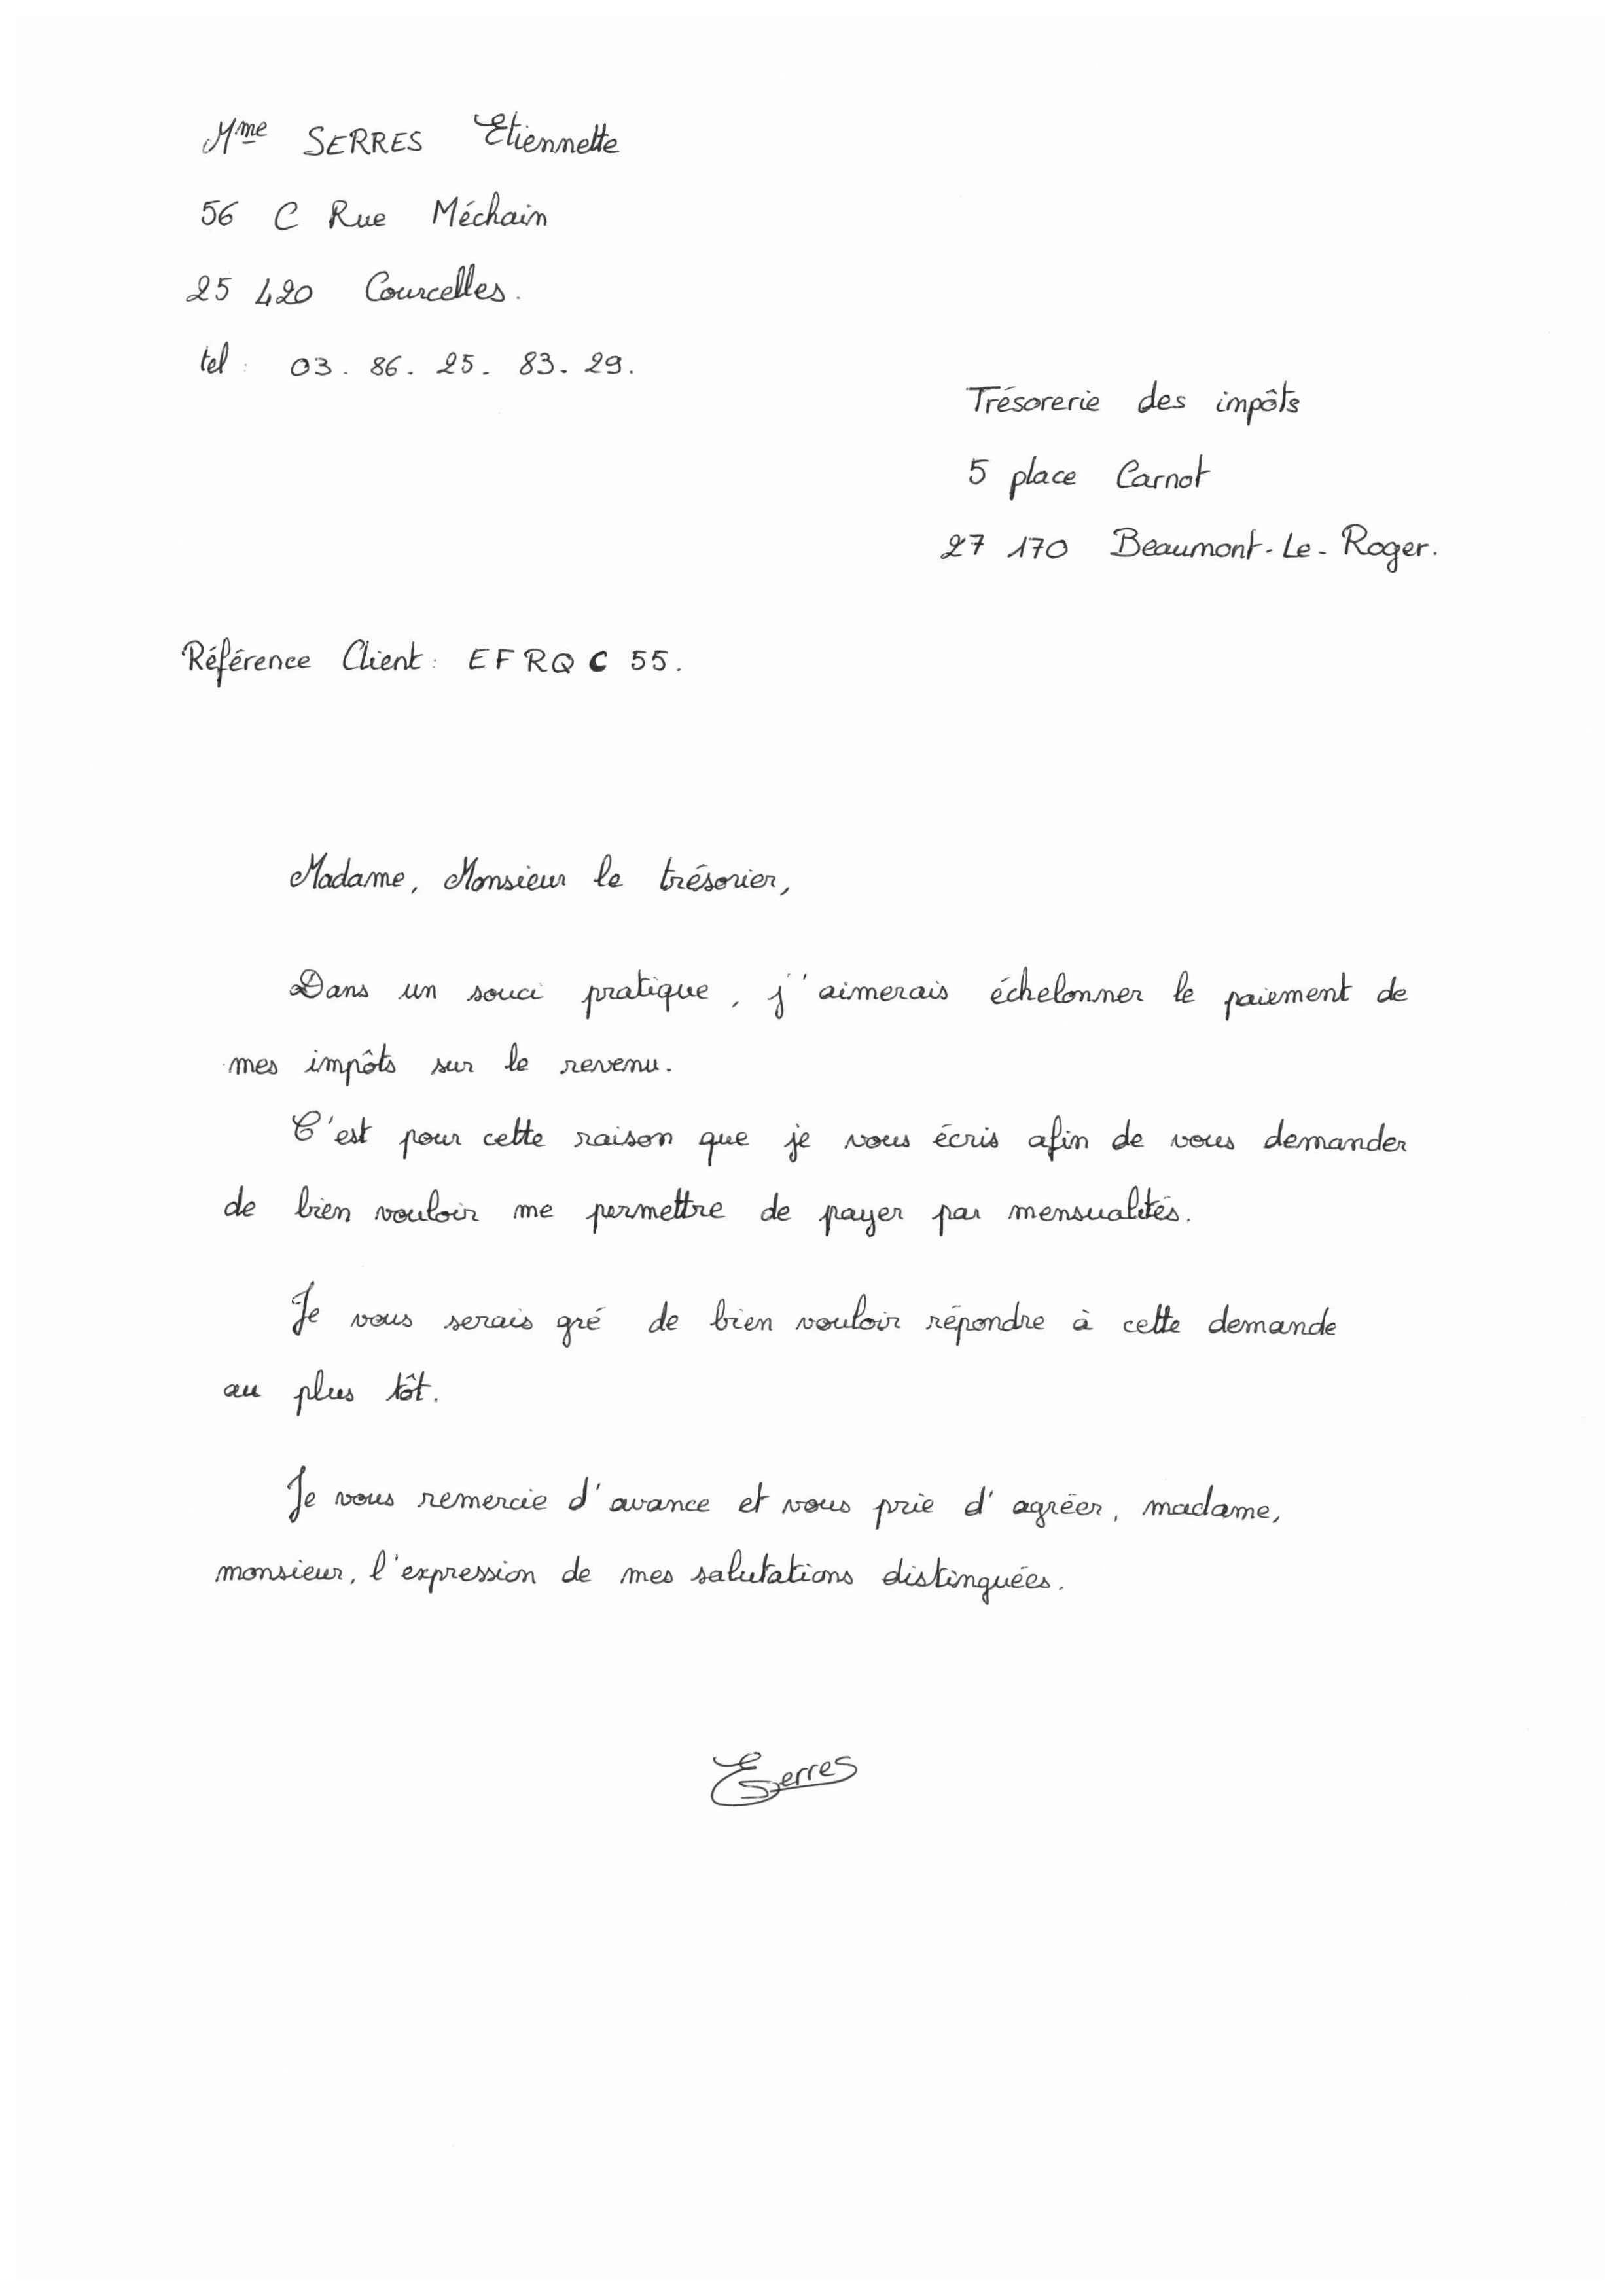 Mme SERRES Etiennette
56 C Rue Méchain
25 420 Courcelles.
tel : 03. 86. 25. 83. 29.
Trésorerie des impôts
5 place Carnot
27 170 Beaumont-Le-Roger.
Référence Client : EFRQC55.
Madame, Monsieur le trésorier,
Dans un souci pratique, j'aimerais échelonner le paiement de
mes impôts sur le revenu.
C'est pour cette raison que je vous écris afin de vous demander
de bien vouloir me permettre de payer par mensualités.
Je vous serais gré de bien vouloir répondre à cette demande
au plus tôt.
Je vous remercie d'avance et vous prie d'agréer, madame,
monsieur, l'expression de mes salutations distinguées.
ESerres